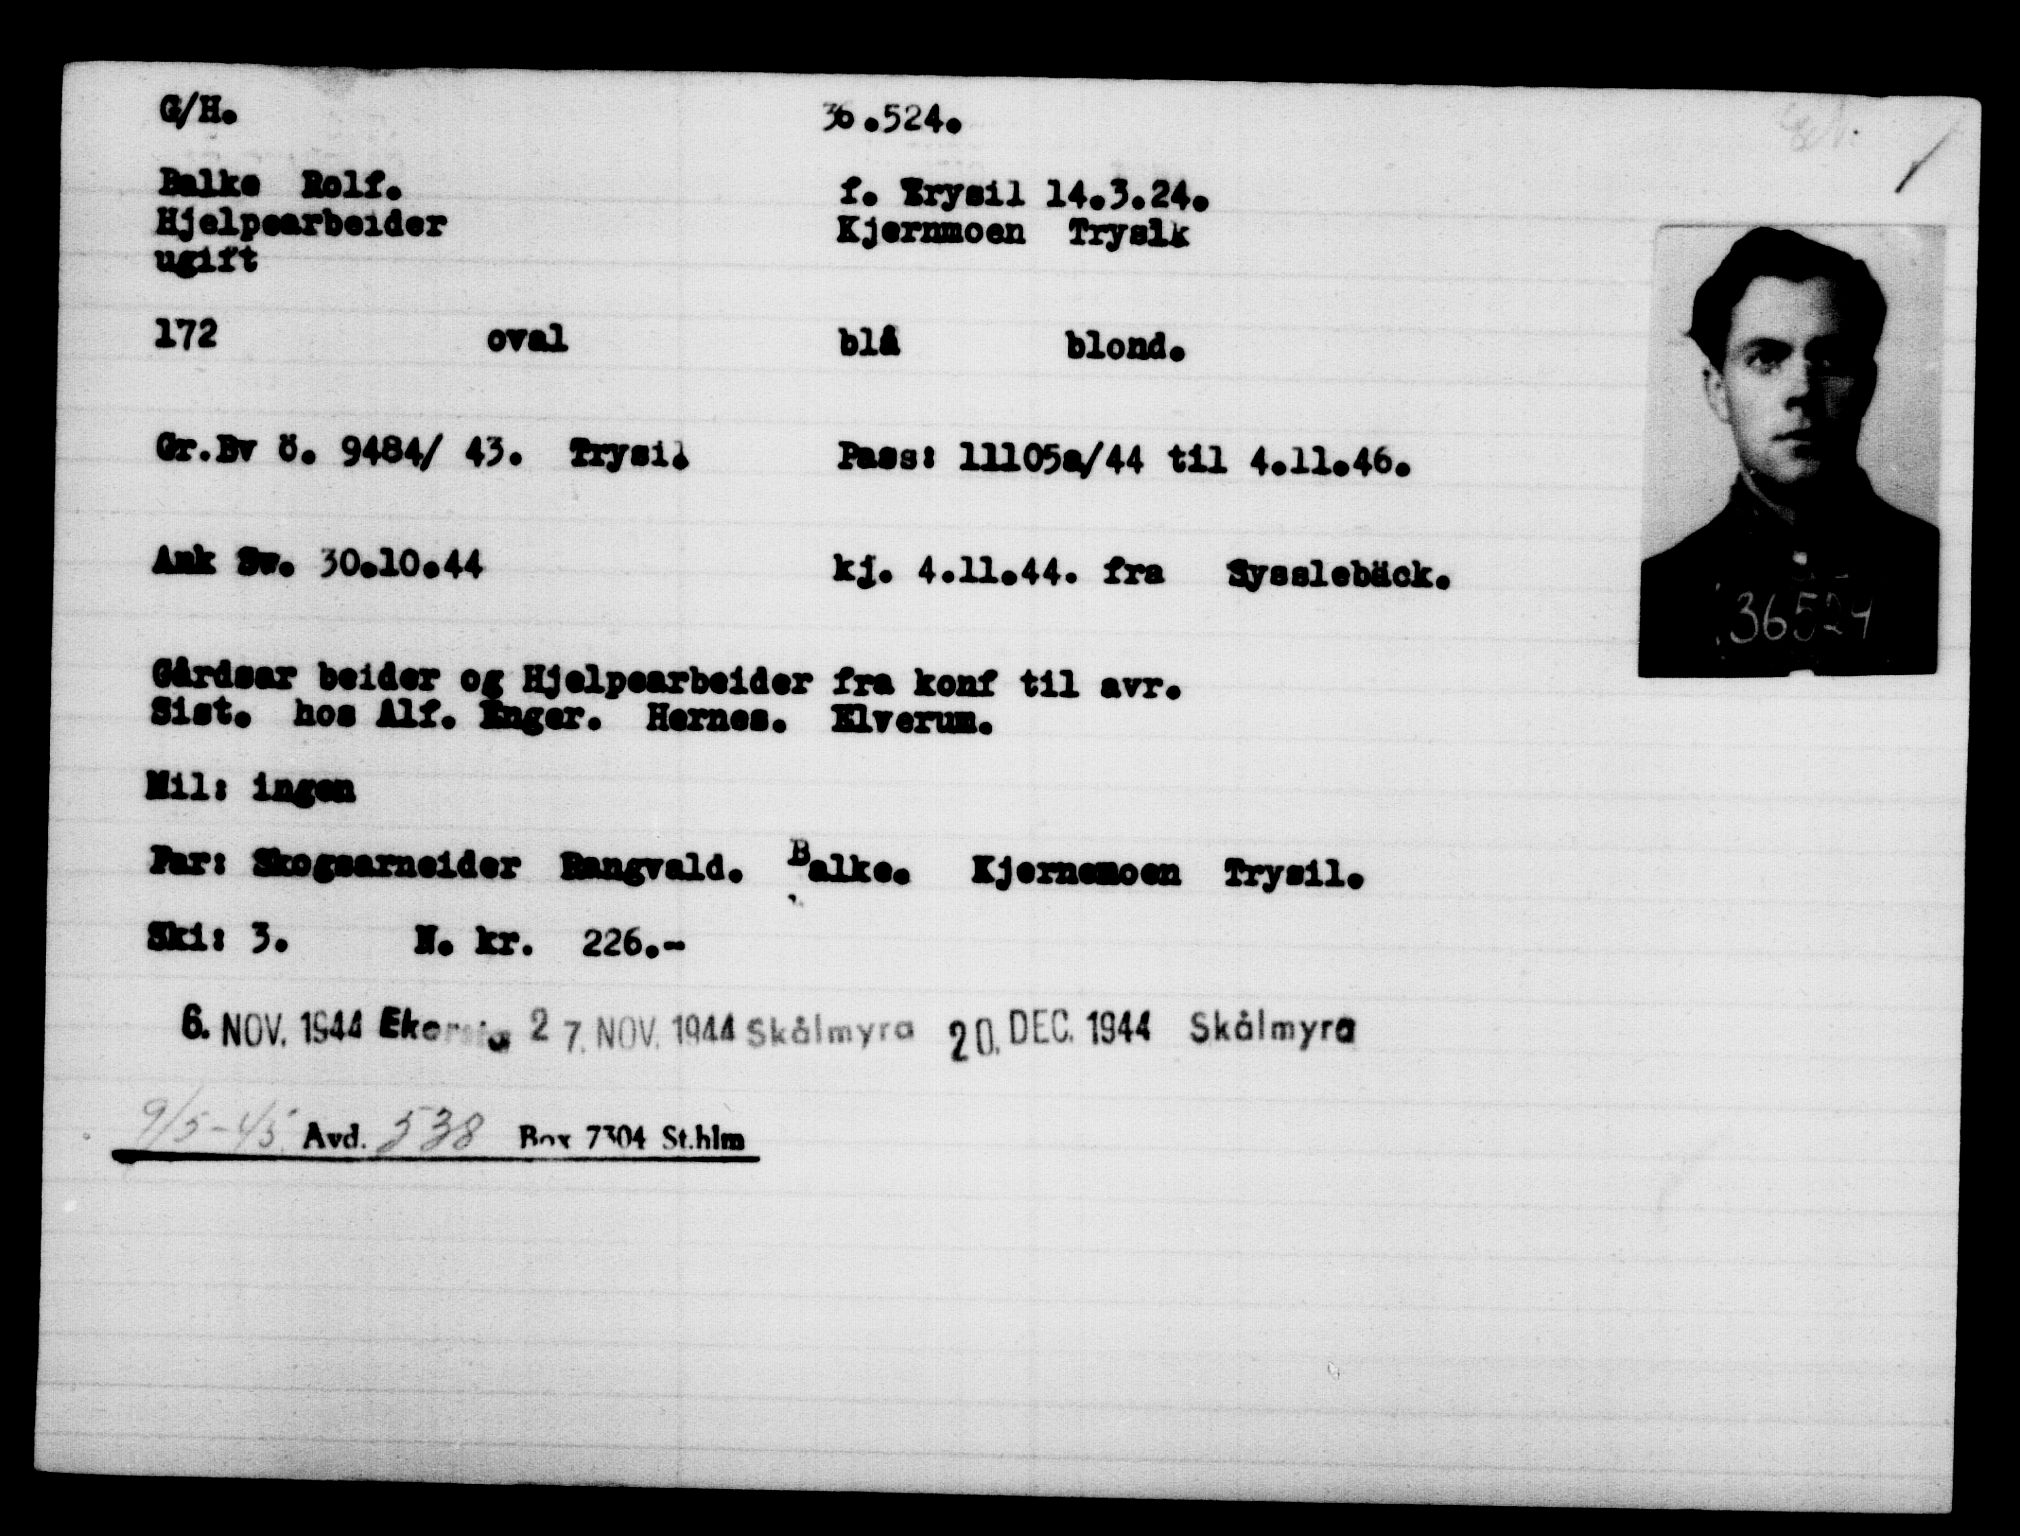 G/H. 36.524.
Balke Rolf. f. Trysil 14.3.24.
Hjelpearbeider Kjernmoen Tryslk
ugift
172 oval blå blond.
Gr.Bv ö. 9484/ 43. Trysil Pass: 11105a/44 til 4.11.46.
Ank Sv. 30.10.44 kj. 4.11.44. fra Sysslebäck.
36524
Gårdsar beider og Hjelpearbeider fra konf til avr.
Sist. hos Alf. Enger. Hernes. Elverum.
Mil: ingen
Far: Skogsarneider Rangvald. Balke. Kjernemoen Trysil.
Ski: 3. N. kr. 226.-
6. NOV. 1944 27. NOV. 1944 Skålmyra 20. DEC. 1944 Skålmyra
9/5-45 Avd. 538 Box 7304 St.hlm